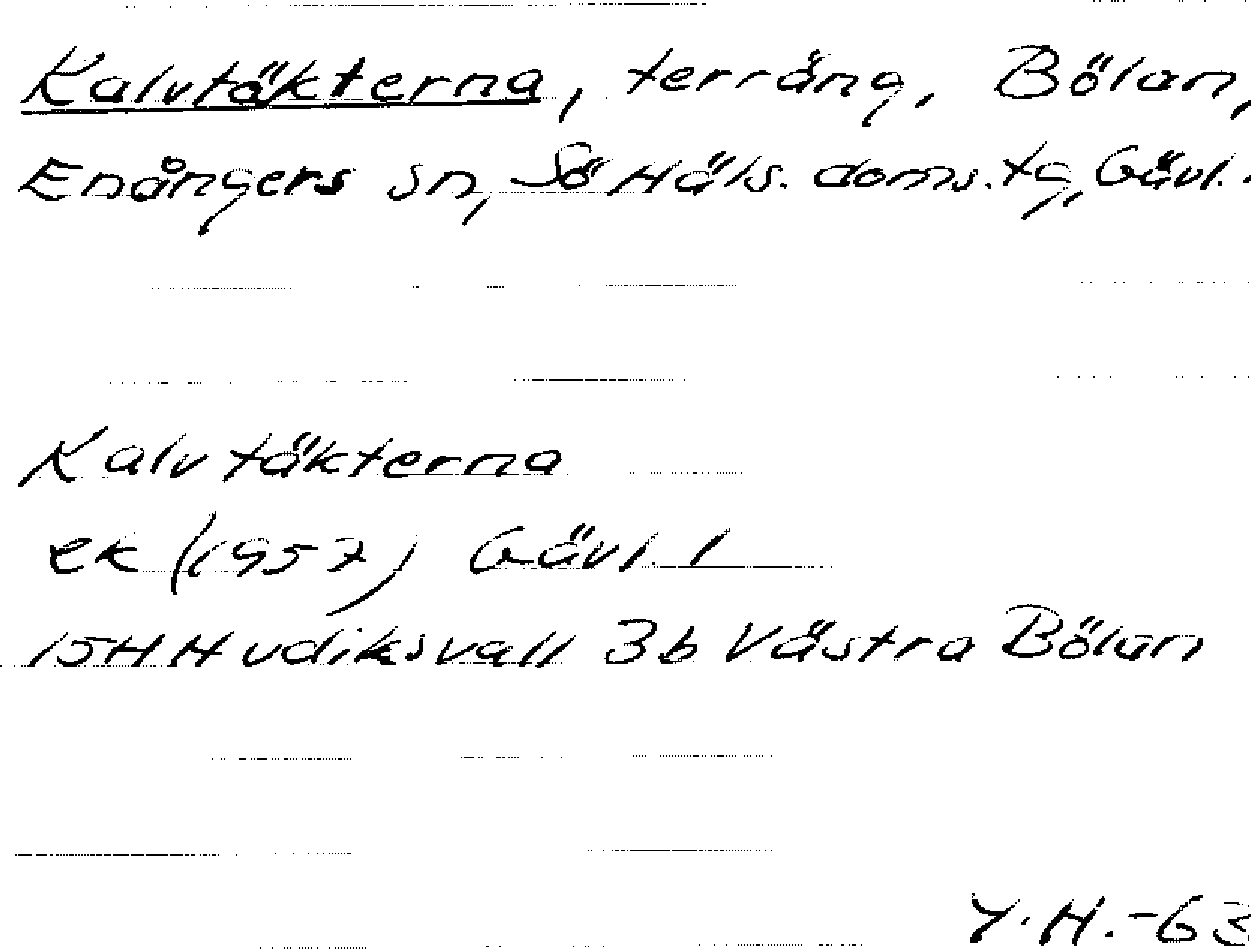 Kalvtäkterna, terräng, Bölan,
Enångers sn, Sö Häls. doms. tg, Gävl. 
Kalvtäkterna
ek (1957) Gävl. l
15H Hudiksvall 3b Västra Bölan
Y.H.-63